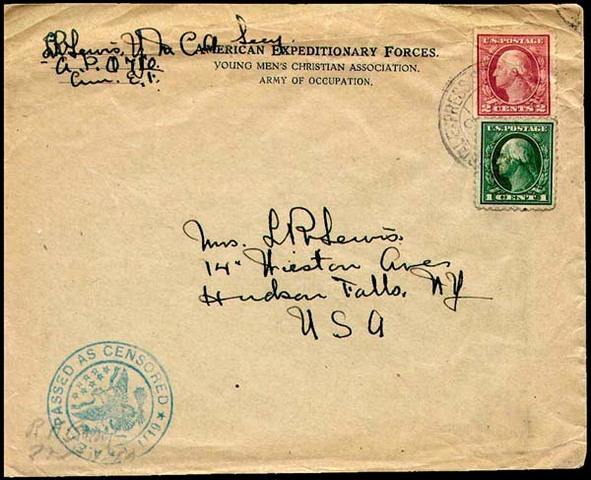 LRLewis, Y M C A Secy.
AMERICAN EXPEDITIONARY FORCES.
A. P. O 710
YOUNG MEN'S CHRISTIAN ASSOCIATION.
Am. E. F.
ARMY OF OCCUPATION.
U.S. POSTAGE
2 CENTS 2
U.S. POSTAGE
1 CENT 1
Mrs. L R Lewis.
14 Wieston Aves
Hudson Falls. NY
USA
PASSED AS CENSORED
A.E.F.